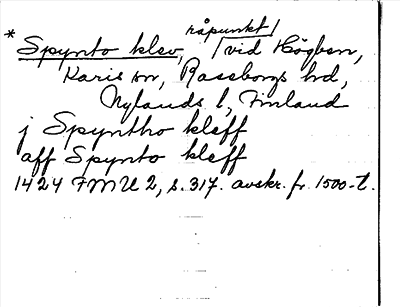 råpunkt /
* Spynto klev, / vid Högben,
Karis sn, Raseborgs hd,
Nylands l, Finland
j Spyntho kleff
aff Spynto kleff
1424 FMU 2, s. 317. avskr. fr. 1500-t.